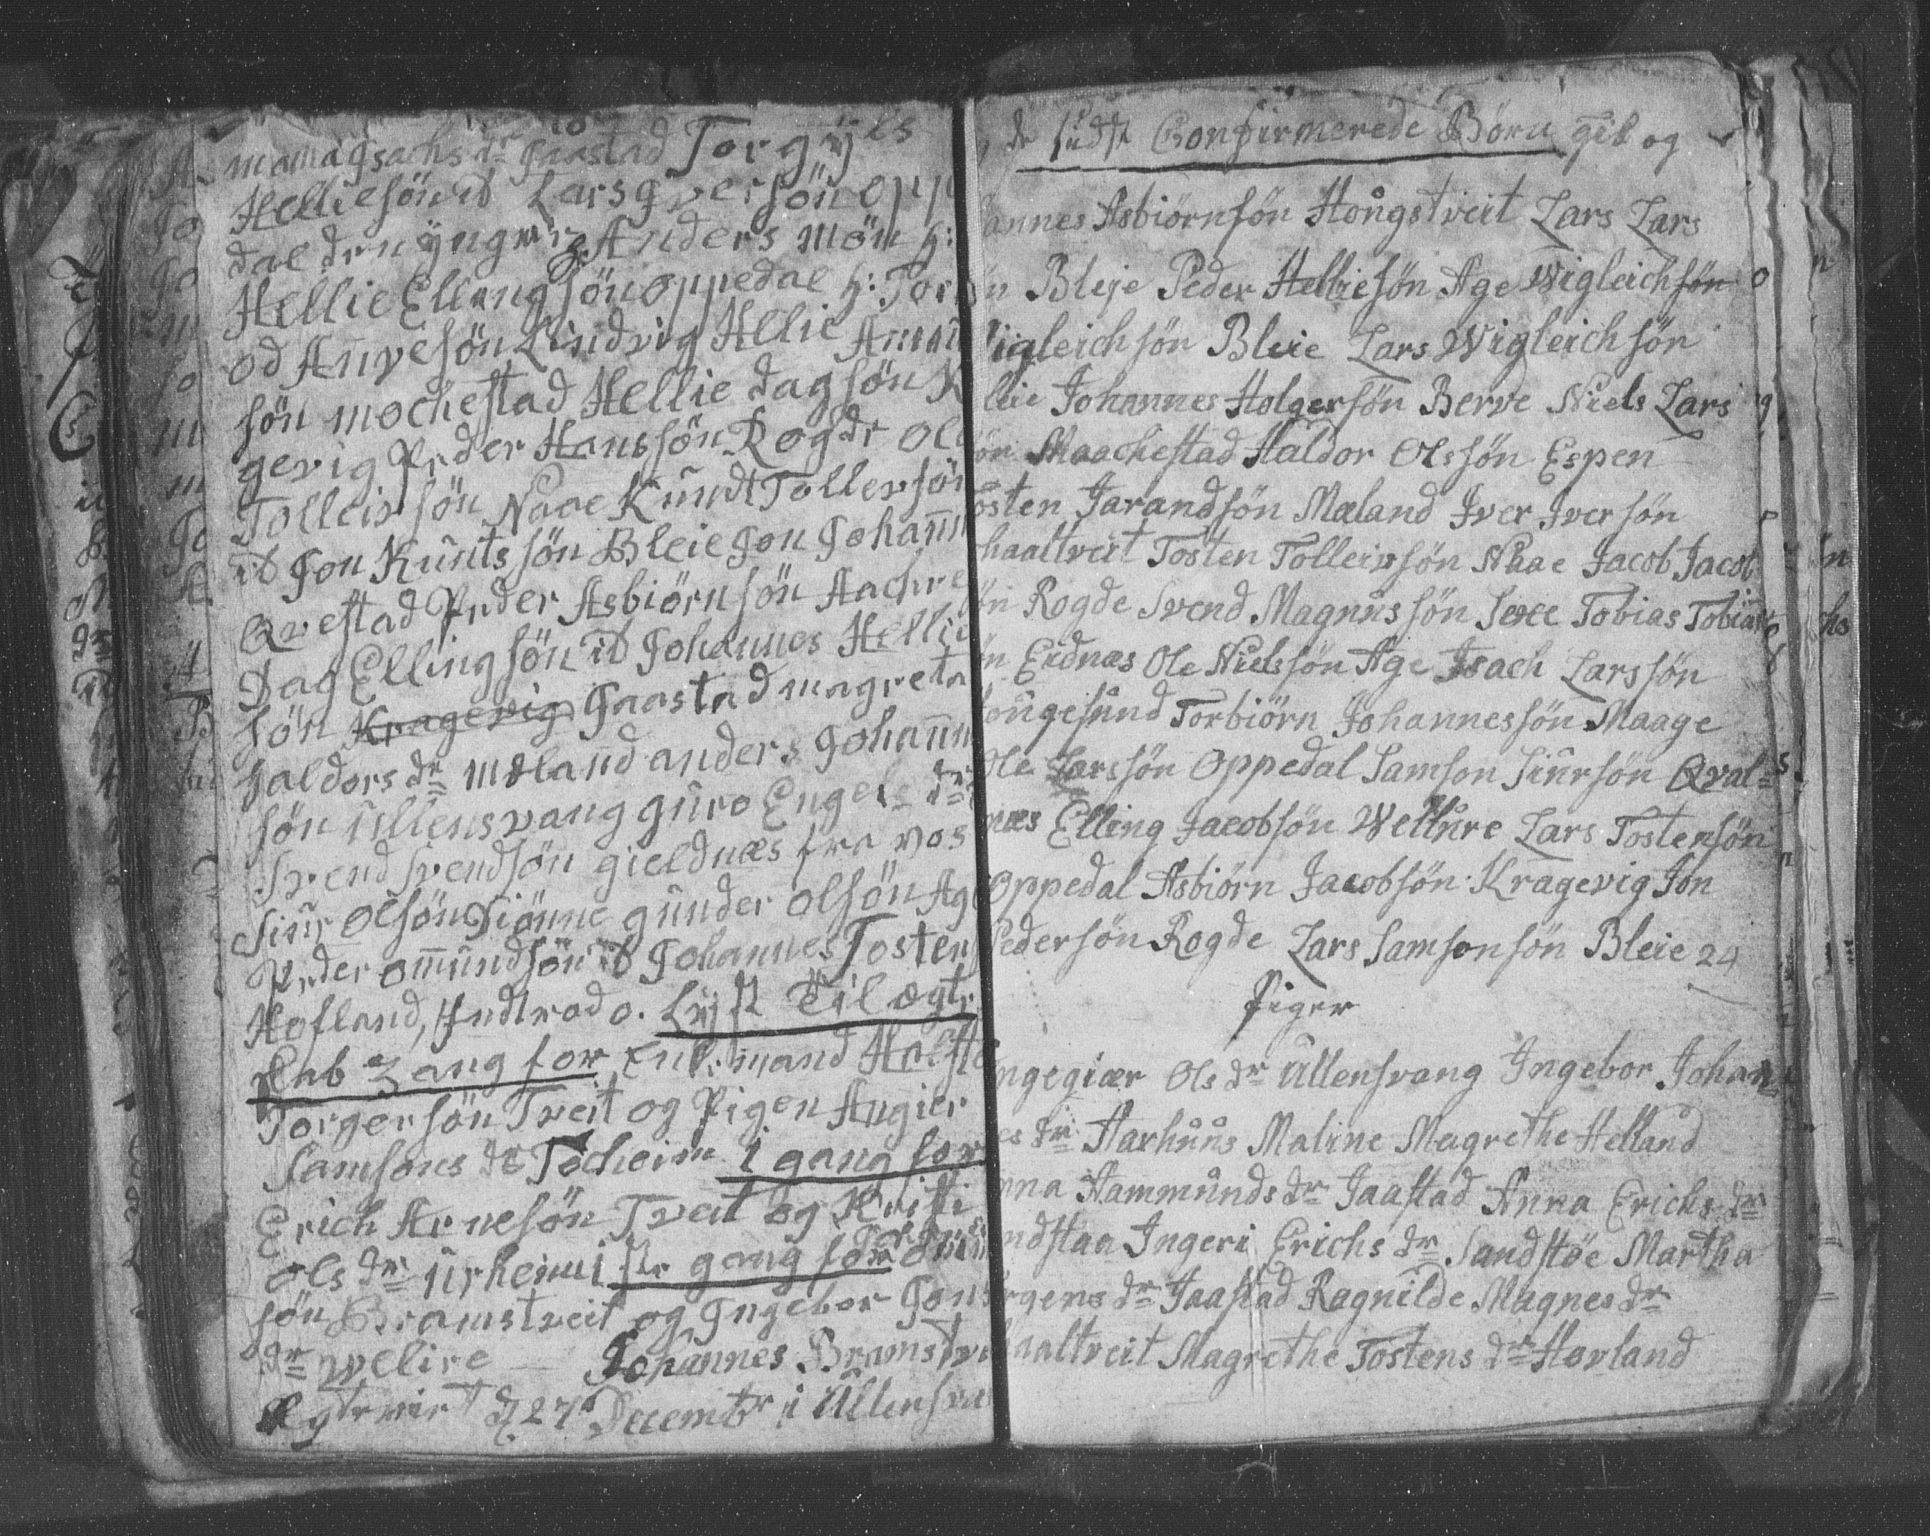 Jsachs dr Jaastad Torgÿls
Helliesön ib Lars Jversön Opp
dal den ÿngre Anders
Hellie Ellingsön Oppedal
od Anvesön Lindvig Hellie
sön mochestad Hellie dagsön K
gevig Peder Hanssön Rogde Ol
Tolleivsön Naae Knudt Tollevsön
ib Jon Knutssön Bleie Jon Johann
Qvestad Peder Asbiörnsön Aachre
Dag Ellingsön ib Johannes Hellie
sön Kragevig Jaastad magreta
haldors dr mæland anders Johann
sön ullensvang guro Engels dr
Svend Svendsön gieldnæs fra vos
Siur olsön Diönne gunder olsön Ag
Peder omundsön ib Johannes Tosten
Hofland, Lyst til ægte
skab 3 ang for Enkemand Halst
Torgersön Tveit og Pigen Angier
Samsons dr Tocheim 1 gang for
Erich Arnesön Tveit og Kristi
ols dr urheim gang for
sön Bramstveit og Ingebor Jons
dr velire Johannes Bramstve
Egtevixt d 27 Decembr i Ullensva
de sidst Confirmerede Börn gik og
annes Asbiörnsön Hougstveit Lars Lars
ön Bleje Peder Helliesön Age Wigleichsön
Vigleichsön Bleie Lars Wigleichsön
leie Johannes Holgersön Berve Niels Lars
ön Maachestad Haldor Olssön Espen
osten Jarandsön Mæland Jver Jversön
haaltveit Tosten Tolleivsön Naae Jacob Jacob
ön Rogde Svend Magnussön Sexe Tobias Tobias
ön Eidnæs Ole Nielssön Age Isach Larssön
ougesund Torbiörn Johannessön Maage
Ole Larssön Oppedal Samson Siursön Qval=
næs Elling Jacobsön Wellure Lars Tostensön
Oppedal Asbiörn Jacobsön Kragevig Jon
Pedersön Rogde Lars Samsonsön Bleie 24
Piger
ngegiær Ols dr Ullensvang Ingebor Johan=
es dr Aarhuus Maline Magrethe Helland
nna Aammunds dr Jaastad Anna Erichs dr
ndstaa Ingeri Erichs dr Sandstöe Martha
rgens dr Jaastad Ragnilde Magnes dr
aaltveit Magrethe Tostens dr Hovland